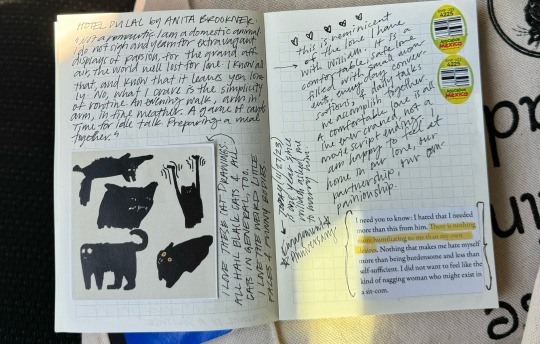 HOTEL DU LAC by ANITA BROOKNER:
I'm not a romantic. I am a domestic animal.
I do not sigh and yearn for extravagant
displays of passion, for the grand aff-
air, the world well lost for love. I know all
that, and know that it leaves you lone-
ly. No, what I crave is the simplicity
of routine. An evening walk, arm in
arm, in fine weather. A game of cards.
Time for idle talk. Preparing a meal
together.
I LOVE THESE CAT DRAWINGS!
ALL HAIL BLACK CATS & ALL
CATS IN GENERAL, TOO.
I LOVE THE WEIRD LITTLE
FACES & FUNNY BODIES
this is reminiscent
of the love I have
with William. It is a
comfortable, safe love
filled with small mom-
ents, every day conver-
sations & daily tasks
we accomplish together.
A comfortable love is all
I've ever craved, not a
movie script ending. I
am happy to feel at
home in our love, our
partnership, our com-
panionship.
one year since
William asked me
to marry him.
Anniversary
4225
AVOCADOS
MEXICO
4225
AVOCADOS
MEXICO
I need you to know: I hated that I needed
more than this from him. There is nothing
more humiliating to me than my own
desires. Nothing that makes me hate myself
more than being burdensome and less than
self-sufficient. I did not want to feel like the
kind of nagging woman who might exist in
a sit-com.